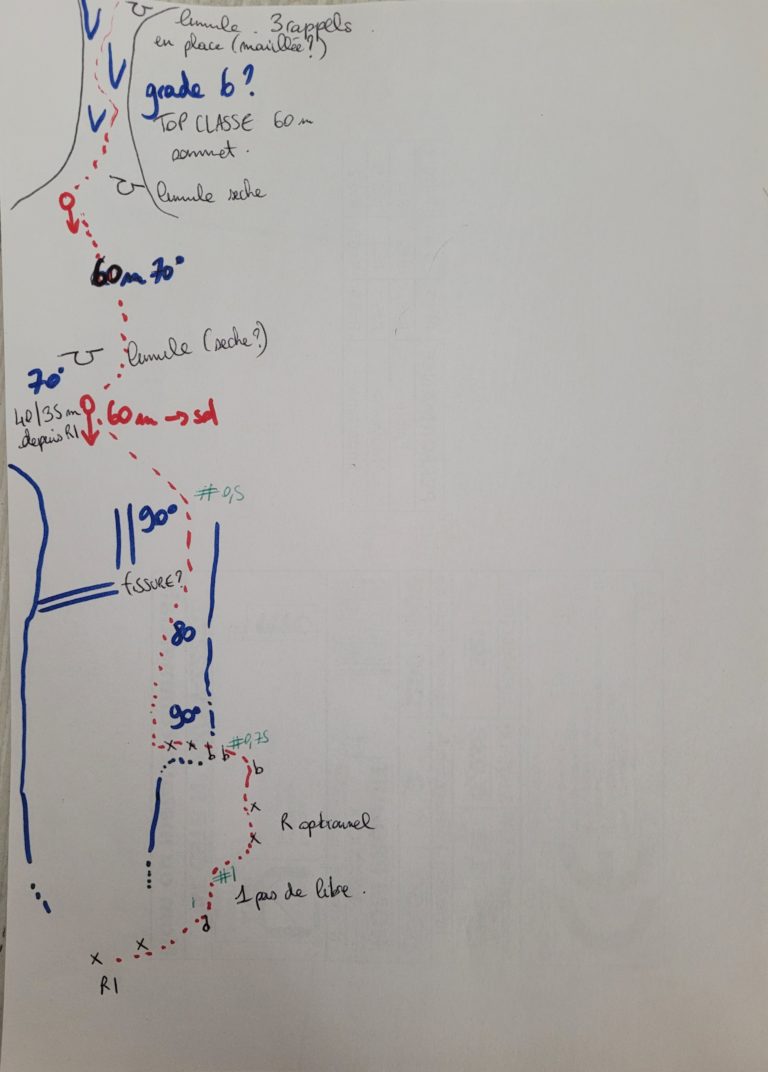 lunule . 3 rappels .
en place (maillée ?)
grade b ?
TOP CLASSE 60 m
sommet .
lunule seche
60 m 70°
lunule (seche ?)
70°
40/35 m
depuis R1
60 m → sol
# 0,5
90°
fISSURE ?
80
90°
# 0,75
x x b b
b
x
R optionnel
x
#1
1 pas de libre .
x
x
R1